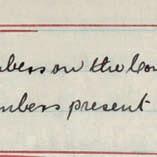 mbers on the Com
mbers present